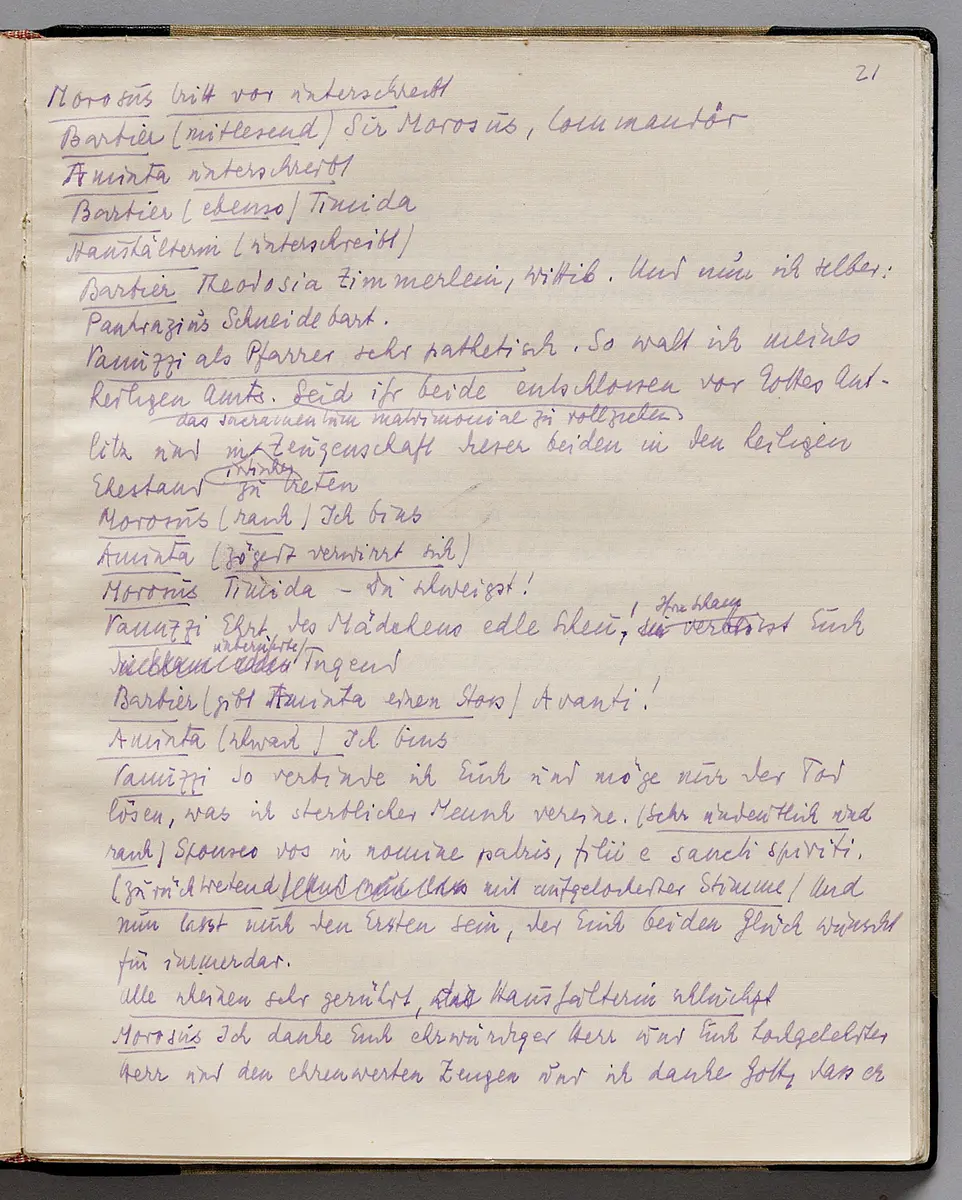 21
Morosus tritt vor unterschreibt
Barbier (mitlesend) Sir Morosus, Commandör
Aminta unterschreibt
Barbier (ebenso) Timida
Haushälterin (unterschreibt)
Barbier Theodosia Zimmerlein, Wittib. Und nun ich selber:
Pankrazius Schneidebart.
Vanuzzi als Pfarrer sehr pathetisch. So walt ich meines
heiligen Amts. Seid ihr beide entschlossen vor Gottes Ant-
das sacramentum matrimonial zu vollziehen
litz und in Zeugenschaft dieser beiden in den heiligen
Ehestand zu treten
Morosus (rauh) Ich bins
Aminta (zögert verwirrt sich)
Morosus Timida – Du schweigst!
Ihre Scham
Vanuzzi Ehrt des Mädchens edle Scheu! sie verbürgt Euch
unberührte
Tugend
Barbier (gibt Aminta einen Stoss) Avanti!
Aminta (schwach) Ich bins
Vanuzzi So verbinde ich Euch und möge nur der Tod
lösen, was ich sterblicher Mensch vereine. (sehr undeutlich und
rasch) Sponseo vos in nomine patris, filii e sancti spiriti.
(zurücktretend) mit aufgelockerter Stimme) Und
nun lasst mich den Ersten sein, der Euch beiden Glück wünscht
für immerdar.
Alle scheinen sehr gerührt, Haushälterin schluchzt
Morosus Ich danke Euch ehrwürdiger Herr und Euch hochgelehrter
Herr und den ehrenwerten Zeugen und ich danke Gott, dass er